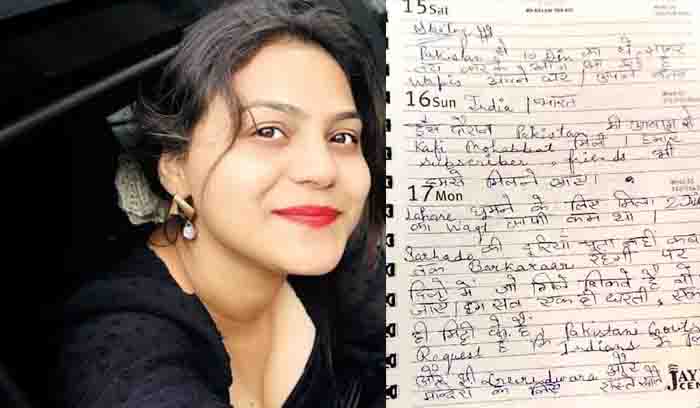 15 Sat
Pakistan से 10 Din का ये सफर
Wapis अपने घर / अपने वतन
16 Sun India / भारत
इस दौरान Pakistan की आवाम से
Kafi Mohabbat मिली । हमारे
subscriber, friends भी
हमसे मिलने आए ।
17 Mon
Lahore घूमने के लिए मिला 2 Din
का Waqt काफी कम था ।
Sarhado की दूरियां पता नहीं कब
तक Barkaraar रहेगी पर
दिलो में जो गिले शिकवे है वो
जाए । हम सब एक ही धरती, एक
ही मिट्टी के है । Pakistani Govt
Request है कि Indians के
और भी Gurudwara और
मन्दिरो के लिए रास्ते खोले
JAY
CEN